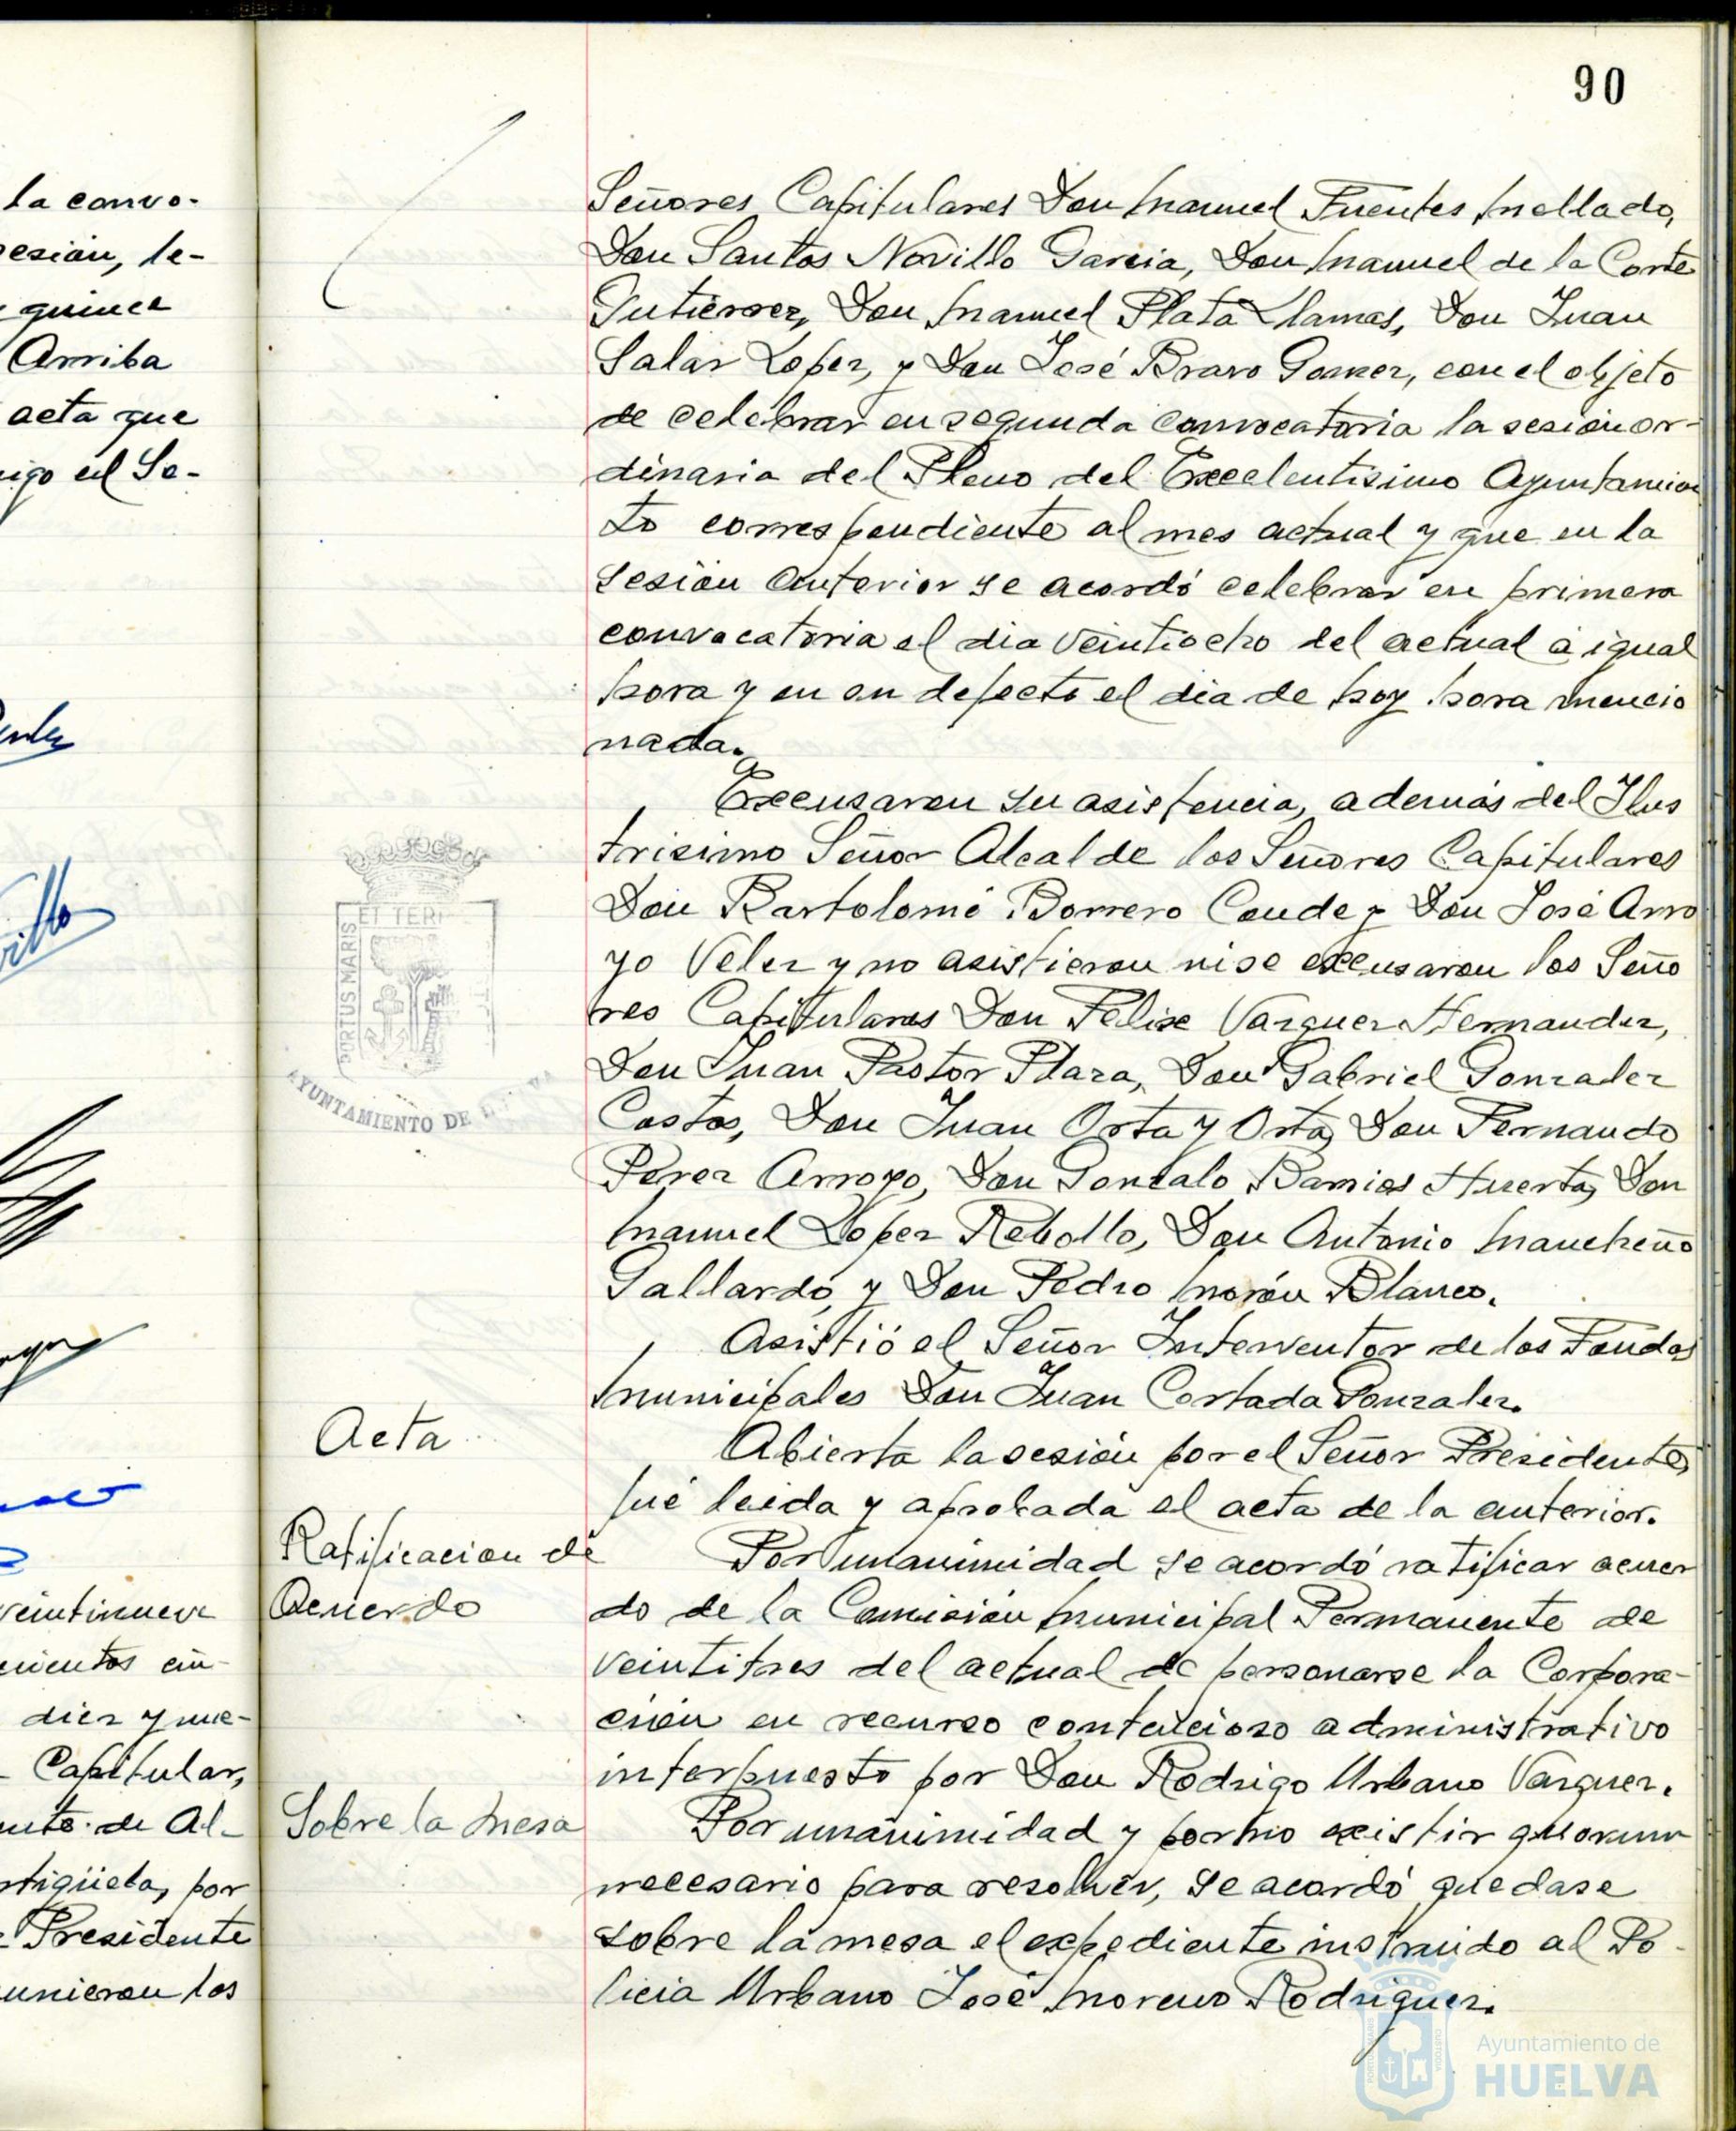 90
la convo-
esión, le-
quince
Arriba
acta que
igo el Se-
veintinueve
cientos cin-
diez y nue-
Capitular,
nte de Al-
rtigüela, por
Presidente
unieron los
Señores Capitulares Don Manuel Fuentes Mellado,
Don Santos Novillo Garcia, Don Manuel de la Corte
Gutierrez, Don Manuel Plata Llamas, Don Juan
Salas Lopez, y Don José Bravo Gomez, con el objeto
de celebrar en segunda convocatoria la sesión or-
dinaria del Pleno del Excelentisimo Ayuntamien
to correspondiente al mes actual y que en la
sesión anterior se acordó celebrar en primera
convocatoria el dia veintiocho del actual á igual
hora y en su defecto el dia de hoy hora mencio
nada.
Excusaron su asistencia, además del Ilus
trisimo Señor Alcalde los Señores Capitulares
Don Bartolomé Borrero Conde y Don José Arro
yo Velez y no asistieron ni se excusaron los Seño
res Capitulares Don Felix Vazquez Hernandez,
Don Juan Pastor Plaza, Don Gabriel Gonzalez
Costas, Don Juan Orta y Orta, Don Fernando
Perez Arroyo, Don Gonzalo Barrios Huerta, Don
Manuel Lopez Rebollo, Don Antonio Mancheño
Gallardo, y Don Pedro Morón Blanco.
Asistió el Señor Interventor de los Fondos
Municipales Don Juan Cortada Gonzalez.
Acta
Abierta la sesión por el Señor Presidente,
fué leida y aprobada el acta de la anterior.
Ratificacion de
Acuerdo
Por unanimidad se acordó ratificar acuer
do de la Comisión Municipal Permanente de
veintitres del actual de personarse la Corpora-
ción en recurso contencioso administrativo
interpuesto por Don Rodrigo Urbano Vazquez.
Sobre la Mesa
Por unanimidad y por no existir quorum
necesario para resolver, se acordó quedase
sobre la mesa el expediente instruido al Po-
licia Urbano José Moreno Rodriguez.
ET TERR
PORTUS MARIS
AYUNTAMIENTO DE
Ayuntamiento de
HUELVA